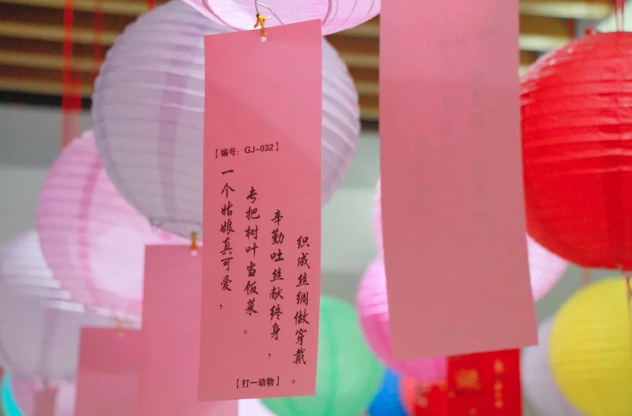 【编号：GJ-032】
一个姑娘真可爱，
专把树叶当饭菜。
辛勤吐丝献终身，
织成丝绸做穿戴。
【打一动物】